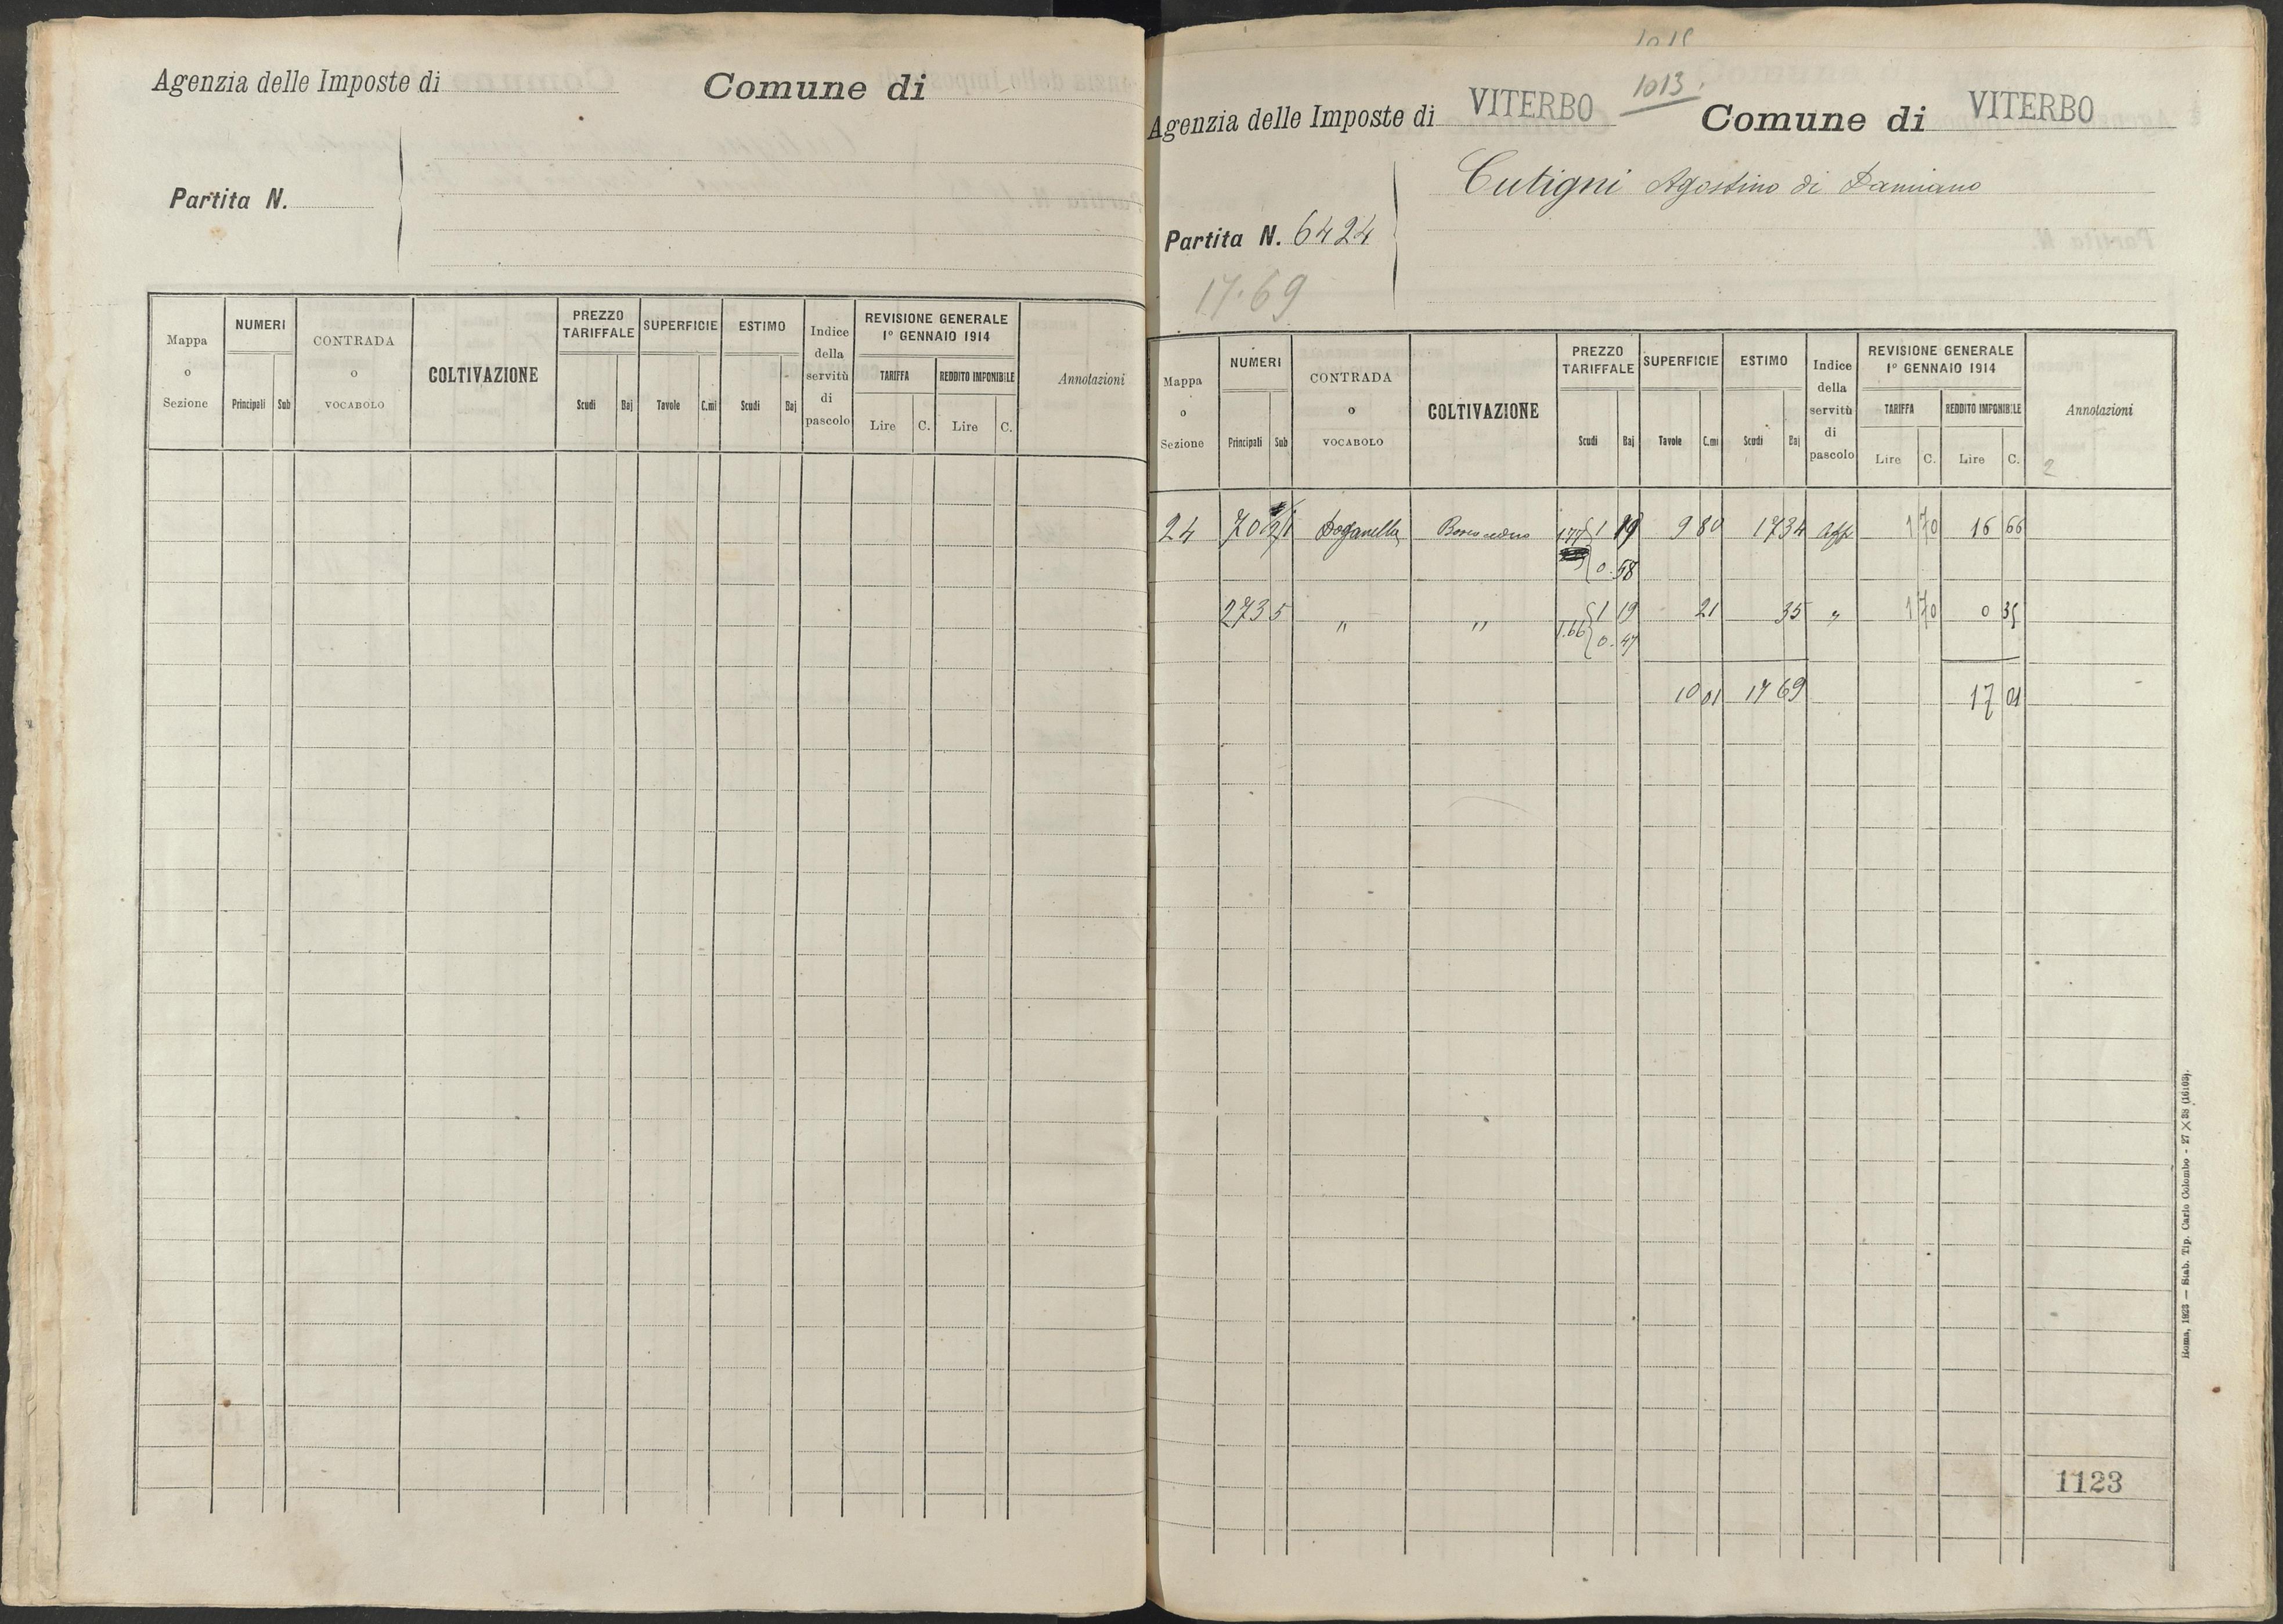 Agenzia delle Imposte di Comune di
Partita N.
Mappa o Sezione NUMERI Principali Sub CONTRADA o VOCABOLO COLTIVAZIONE PREZZO TARIFFALE Scudi Baj SUPERFICIE Tavole C.mi ESTIMO Scudi Baj Indice della servitù di pascolo REVISIONE GENERALE 1° GENNAIO 1914 TARIFFA Lire C. REDDITO IMPONIBILE Lire C. Annotazioni
1013
Agenzia delle Imposte di VITERBO Comune di VITERBO
Cutigni Agostino di Damiano
Partita N. 6424
17.69
Mappa o Sezione NUMERI Principali Sub CONTRADA o VOCABOLO COLTIVAZIONE PREZZO TARIFFALE Scudi Baj SUPERFICIE Tavole C.mi ESTIMO Scudi Baj Indice della servitù di pascolo REVISIONE GENERALE 1° GENNAIO 1914 TARIFFA Lire C. REDDITO IMPONIBILE Lire C. Annotazioni
2
24 Doganella 177 1 19 9 80 17 34 Aff 1 70 16 66
0. 58
2735 " " 1.66 1 19 21 35 " 1 70 0 35
0. 47
10 01 17 69 17 01
1123
Roma, 1923 — Stab. Tip. Carlo Colombo - 27 × 38 (16103).